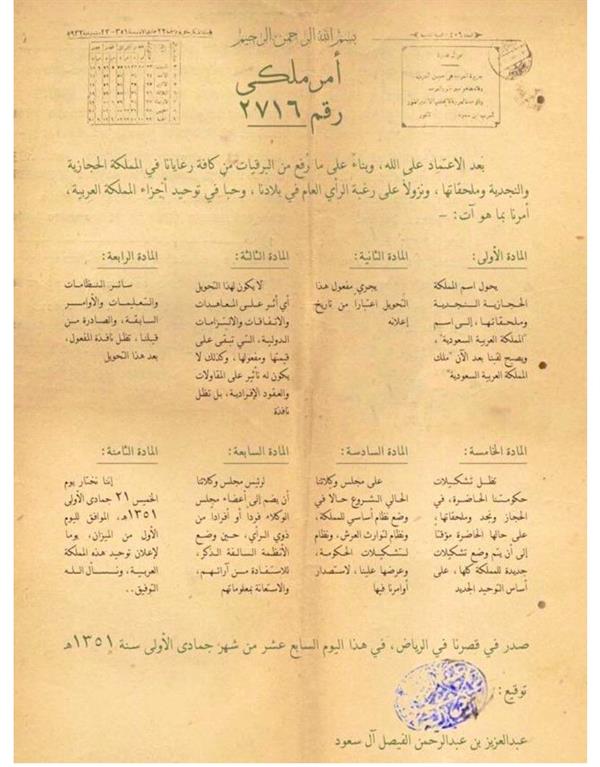 بسم الله الرحمن الرحيم
أمر ملكي
رقم ٢٧١٦
بعد الاعتماد على الله، وبناءً على ما رُفع من البرقيات من كافة رعايانا في المملكة الحجازية
والنجدية وملحقاتها، ونزولاً على رغبة الرأي العام في بلادنا، وحبا في توحيد أجزاء المملكة العربية،
أمرنا بما هو آت: –
المادة الأولى:
يحول اسم المملكة
الحجازية النجدية
وملحقاتها، إلى اسم
"المملكة العربية السعودية"،
ويصبح لقبنا بعد الآن "ملك
المملكة العربية السعودية"
المادة الثانية:
يجري مفعول هذا
التحويل اعتبارا من تاريخ
إعلانه
المادة الثالثة:
لا يكون لهذا التحويل
أي أثر على المعاهدات
والاتفاقات والالتزامات
الدولية، التي تبقى على
قيمتها ومفعولها، وكذلك لا
يكون له تأثير على المقاولات
والعقود الإفرادية، بل تظل
نافذة
المادة الرابعة:
سائر النظامات
والتعليمات والأوامر
السابقة، والصادرة من
قبلنا، تظل نافذة المفعول،
بعد هذا التحويل
المادة الخامسة:
تظل تشكيلات
حكومتنا الحاضرة، في
الحجاز ونجد وملحقاتها،
على حالها الحاضرة مؤقتاً
إلى أن يتم وضع تشكيلات
جديدة للمملكة كلها، على
أساس التوحيد الجديد
المادة السادسة:
على مجلس وكلائنا
الحالي الشروع حالا في
وضع نظام أساسي للمملكة،
ونظام لتوارث العرش، ونظام
لتشكيلات الحكومة،
وعرضها علينا، لاستصدار
أوامرنا فيها
المادة السابعة:
لرئيس مجلس وكلائنا
أن يضم إلى أعضاء مجلس
الوكلاء فرداً أو أفراداً من
ذوي الرأي، حين وضع
الأنظمة السالفة الذكر،
للاستفادة من آرائهم،
والاستعانة بمعلوماتهم
المادة الثامنة:
إننا نختار يوم
الخميس ٢١ جمادى الأولى
١٣٥١هـ، الموافق لليوم
الأول من الميزان، يوما
لإعلان توحيد هذه المملكة
العربية، ونسأل الله
التوفيق..
صدر في قصرنا في الرياض، في هذا اليوم السابع عشر من شهر جمادى الأولى سنة ١٣٥١هـ
توقيع:
عبدالعزيز بن عبدالرحمن الفيصل آل سعود